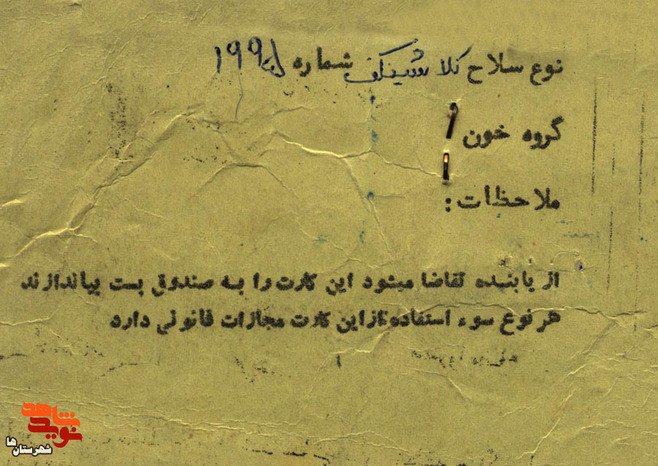 نوع سلاح کلاشینکف شماره ۱۹۹۵
گروه خون
ملاحظات:
از یابنده تقاضا میشود این کارت را به صندوق پست بیاندازند
هر نوع سوء استفاده از این کارت مجازات قانونی دارد
نوید شاهد
شهرستان ها